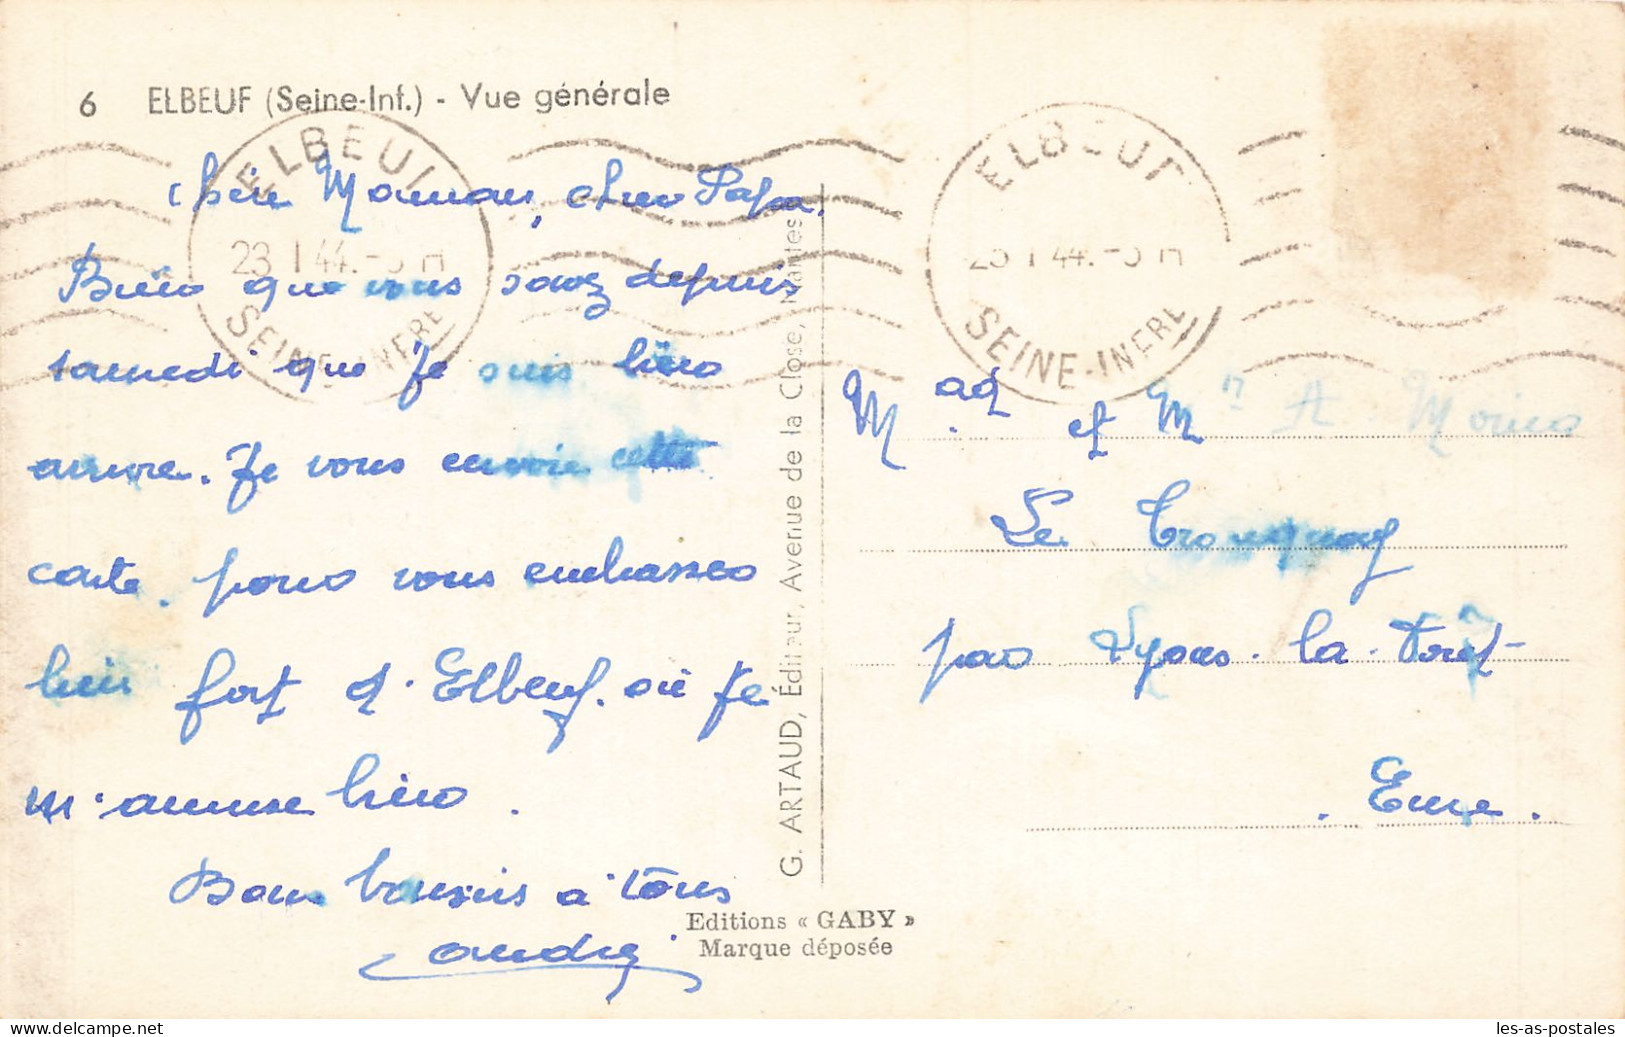 6 ELBEUF (Seine-Inf.) - Vue générale
ELBEUF
23 1 44.
SEINE-INFRE
ELBEUF
1 44.
SEINE-INFRE
Chère Maman, cher Papa.
Bien que vous savez depuis
samedi que je suis bien
arrivé. Je vous envoie cette
carte. pour vous embrasser
bien fort d'Elbeuf. où je
m'amuse bien.
Bons baisers à tous
André
G. ARTAUD, Éditeur, Avenue de la Close, Nantes
Editions « GABY »
Marque déposée
et M A. Morin
Le Tronquay
par Lyons-la-Forêt
Eure.
hwstamp.com
les-as-postales